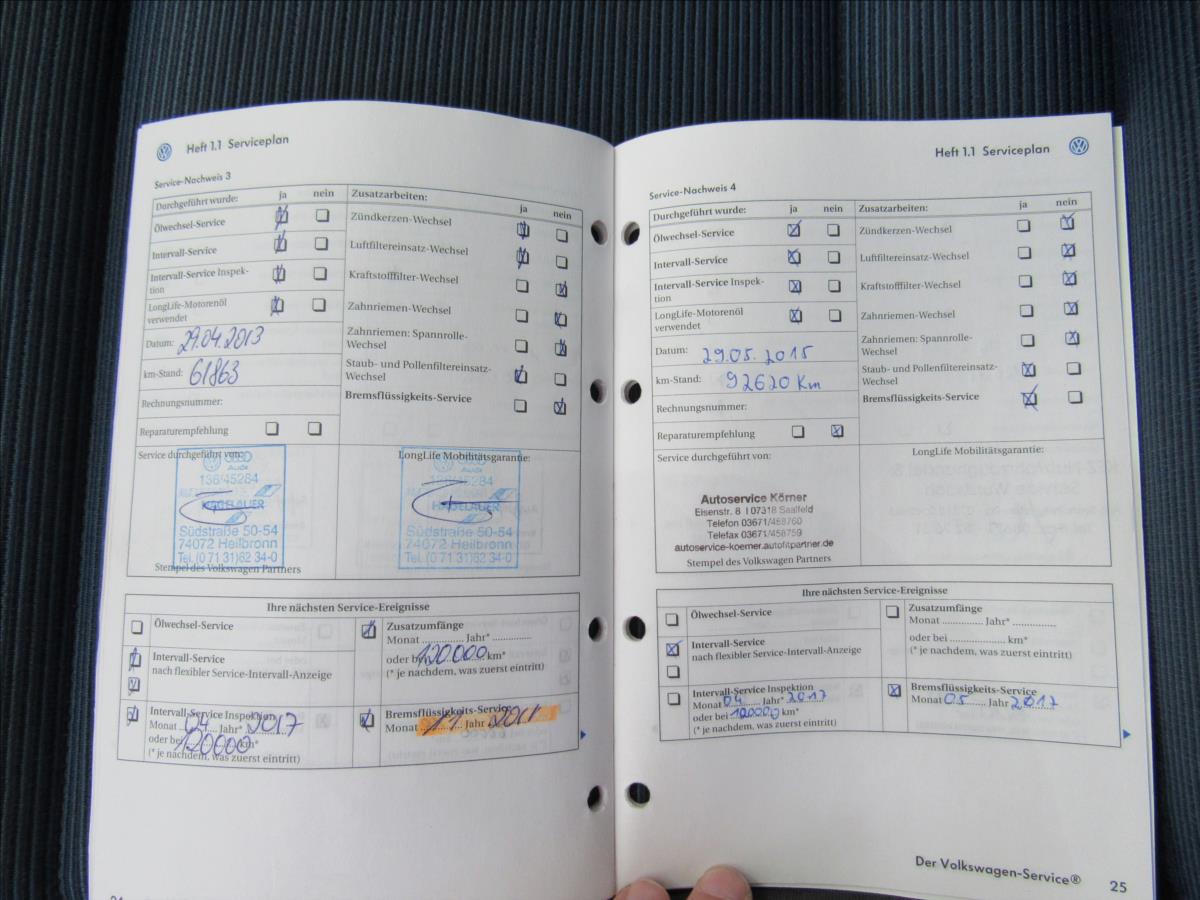 Heft 1.1 Serviceplan
Service-Nachweis 3
Durchgeführt wurde: ja nein
Ölwechsel-Service
Intervall-Service
Intervall-Service Inspek-
tion
LongLife-Motorenöl
verwendet
Datum: 29.04.2013
km-Stand: 61863
Rechnungsnummer:
Reparaturempfehlung
Zusatzarbeiten: ja nein
Zündkerzen-Wechsel
Luftfiltereinsatz-Wechsel
Kraftstofffilter-Wechsel
Zahnriemen-Wechsel
Zahnriemen: Spannrolle-
Wechsel
Staub- und Pollenfiltereinsatz-
Wechsel
Bremsflüssigkeits-Service
Service durchgeführt von:
Audi
136/45284
HAGELAUER
Südstraße 50-54
74072 Heilbronn
Tel. (0 71 31) 62 34-0
Stempel des Volkswagen Partners
LongLife Mobilitätsgarantie:
Audi
136/45284
HAGELAUER
Südstraße 50-54
74072 Heilbronn
Tel. (0 71 31) 62 34-0
Ihre nächsten Service-Ereignisse
Ölwechsel-Service
Intervall-Service
nach flexibler Service-Intervall-Anzeige
Intervall-Service Inspektion
Monat 04 Jahr* 2017
oder bei 120000 km*
(* je nachdem, was zuerst eintritt)
Zusatzumfänge
Monat .............. Jahr* ..............
oder bei 120000 km*
(* je nachdem, was zuerst eintritt)
Bremsflüssigkeits-Service
Monat 11 Jahr 2011
Heft 1.1 Serviceplan
Service-Nachweis 4
Durchgeführt wurde: ja nein
Ölwechsel-Service
Intervall-Service
Intervall-Service Inspek-
tion
LongLife-Motorenöl
verwendet
Datum: 29.05.2015
km-Stand: 92620 Km
Rechnungsnummer:
Reparaturempfehlung
Zusatzarbeiten: ja nein
Zündkerzen-Wechsel
Luftfiltereinsatz-Wechsel
Kraftstofffilter-Wechsel
Zahnriemen-Wechsel
Zahnriemen: Spannrolle-
Wechsel
Staub- und Pollenfiltereinsatz-
Wechsel
Bremsflüssigkeits-Service
Service durchgeführt von:
Autoservice Körner
Eisenstr. 8 I 07318 Saalfeld
Telefon 03671/458760
Telefax 03671/458759
autoservice-koerner.autofitpartner.de
Stempel des Volkswagen Partners
LongLife Mobilitätsgarantie:
Ihre nächsten Service-Ereignisse
Ölwechsel-Service
Intervall-Service
nach flexibler Service-Intervall-Anzeige
Intervall-Service Inspektion
Monat 04 Jahr* 2017
oder bei 120000 km*
(* je nachdem, was zuerst eintritt)
Zusatzumfänge
Monat .............. Jahr* ..............
oder bei .................... km*
(* je nachdem, was zuerst eintritt)
Bremsflüssigkeits-Service
Monat 05 Jahr 2017
Der Volkswagen-Service®
25